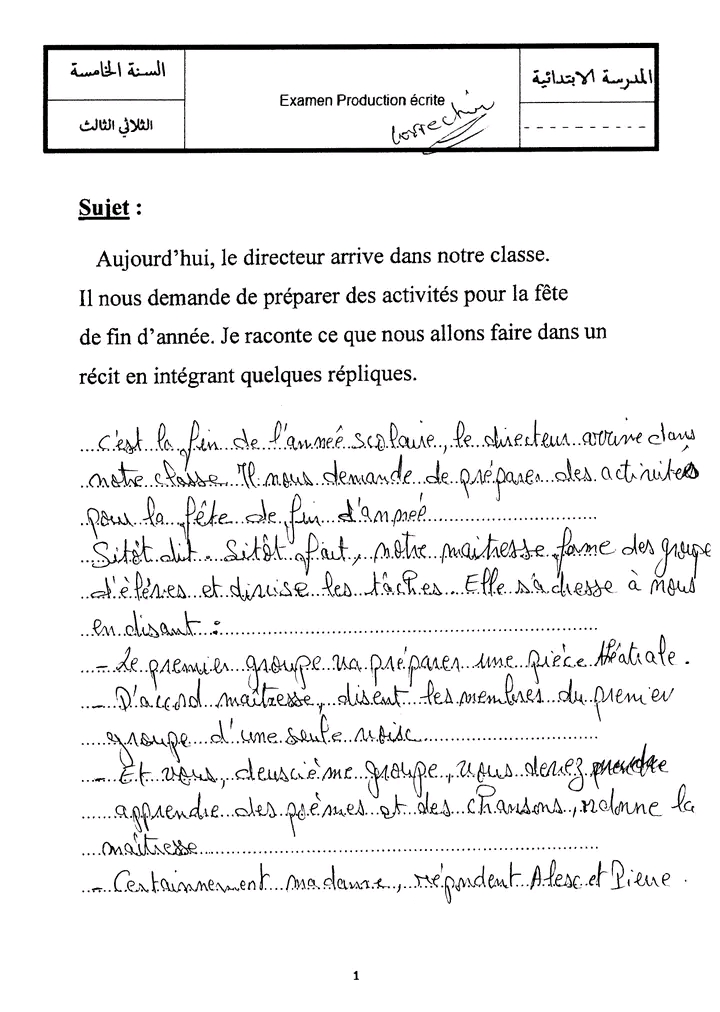 السنة الخامسة
Examen Production écrite
المدرسة الابتدائية
الثلاثي الثالث
correction
----------
Sujet :
Aujourd'hui, le directeur arrive dans notre classe.
Il nous demande de préparer des activités pour la fête
de fin d'année. Je raconte ce que nous allons faire dans un
récit en intégrant quelques répliques.
C'est la fin de l'anneé scolaire, le directeur arrive dans
notre classe. Il nous demande de préparer des activités
pour la fête de fin d'anneé
Sitôt dit. Sitôt fait, notre maitresse forme des groupe
d'élèves et divise les tâches. Elle s'adresse à nous
en disant :
- Le premier groupe va préparer une pièce théatrale.
- D'accord maîtresse, disent les membres du premier
groupe d'une seule voix
- Et vous, deuxième groupe, vous devez prendre
apprendre des poèmes et des chansons, rdonne la
maîtresse
- Certainnement madame, répondent Alex et Pierre.
1